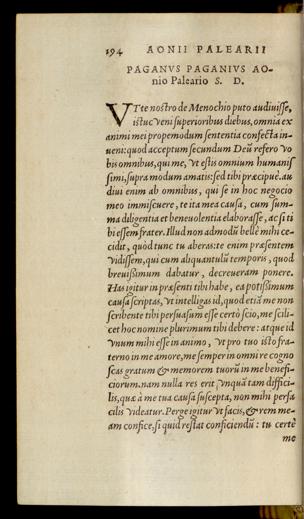 194 AONII PALEARII
PAGANVS PAGANIVS AO-
nio Paleario S. D.
VT te nostro de Menochio puto audiuisse,
istuc veni superioribus diebus, omnia ex
animi mei propemodum sententia confecta in-
ueni: quod acceptum secundum Deũ refero vo
bis omnibus, qui me, vt estis omnium humanis
simi, supra modum amatis: sed tibi præcipuè. au
diui enim ab omnibus, qui se in hoc negocio
meo immiscuere, te ita mea causa, cum sum-
ma diligentia et beneuolentia elaborasse, ac si ti
bi essem frater. Illud non admodũ bellè mihi ce-
cidit, quòd tunc tu aberas: te enim præsentem
vidissem, qui cum aliquantulũ temporis, quod
breuissimum dabatur, decreueram ponere.
Has igitur in præsenti tibi habe, ea potissimum
causa scriptas, vt intelligas id, quod etiã me non
scribente tibi persuasum esse certò scio, me scili-
cet hoc nomine plurimum tibi debere: atque id
vnum mihi esse in animo, vt pro tuo isto fra-
terno in me amore, me semper in omni re cogno
scas gratum & memorem tuorũ in me benefi-
ciorum. nam nulla res erit vnquã tam diffici-
lis, quæ à me tua causa suscepta, non mihi perfa
cilis videatur. Perge igitur vt facis, & rem me-
am confice, si quid restat conficiendũ: tu certè
me